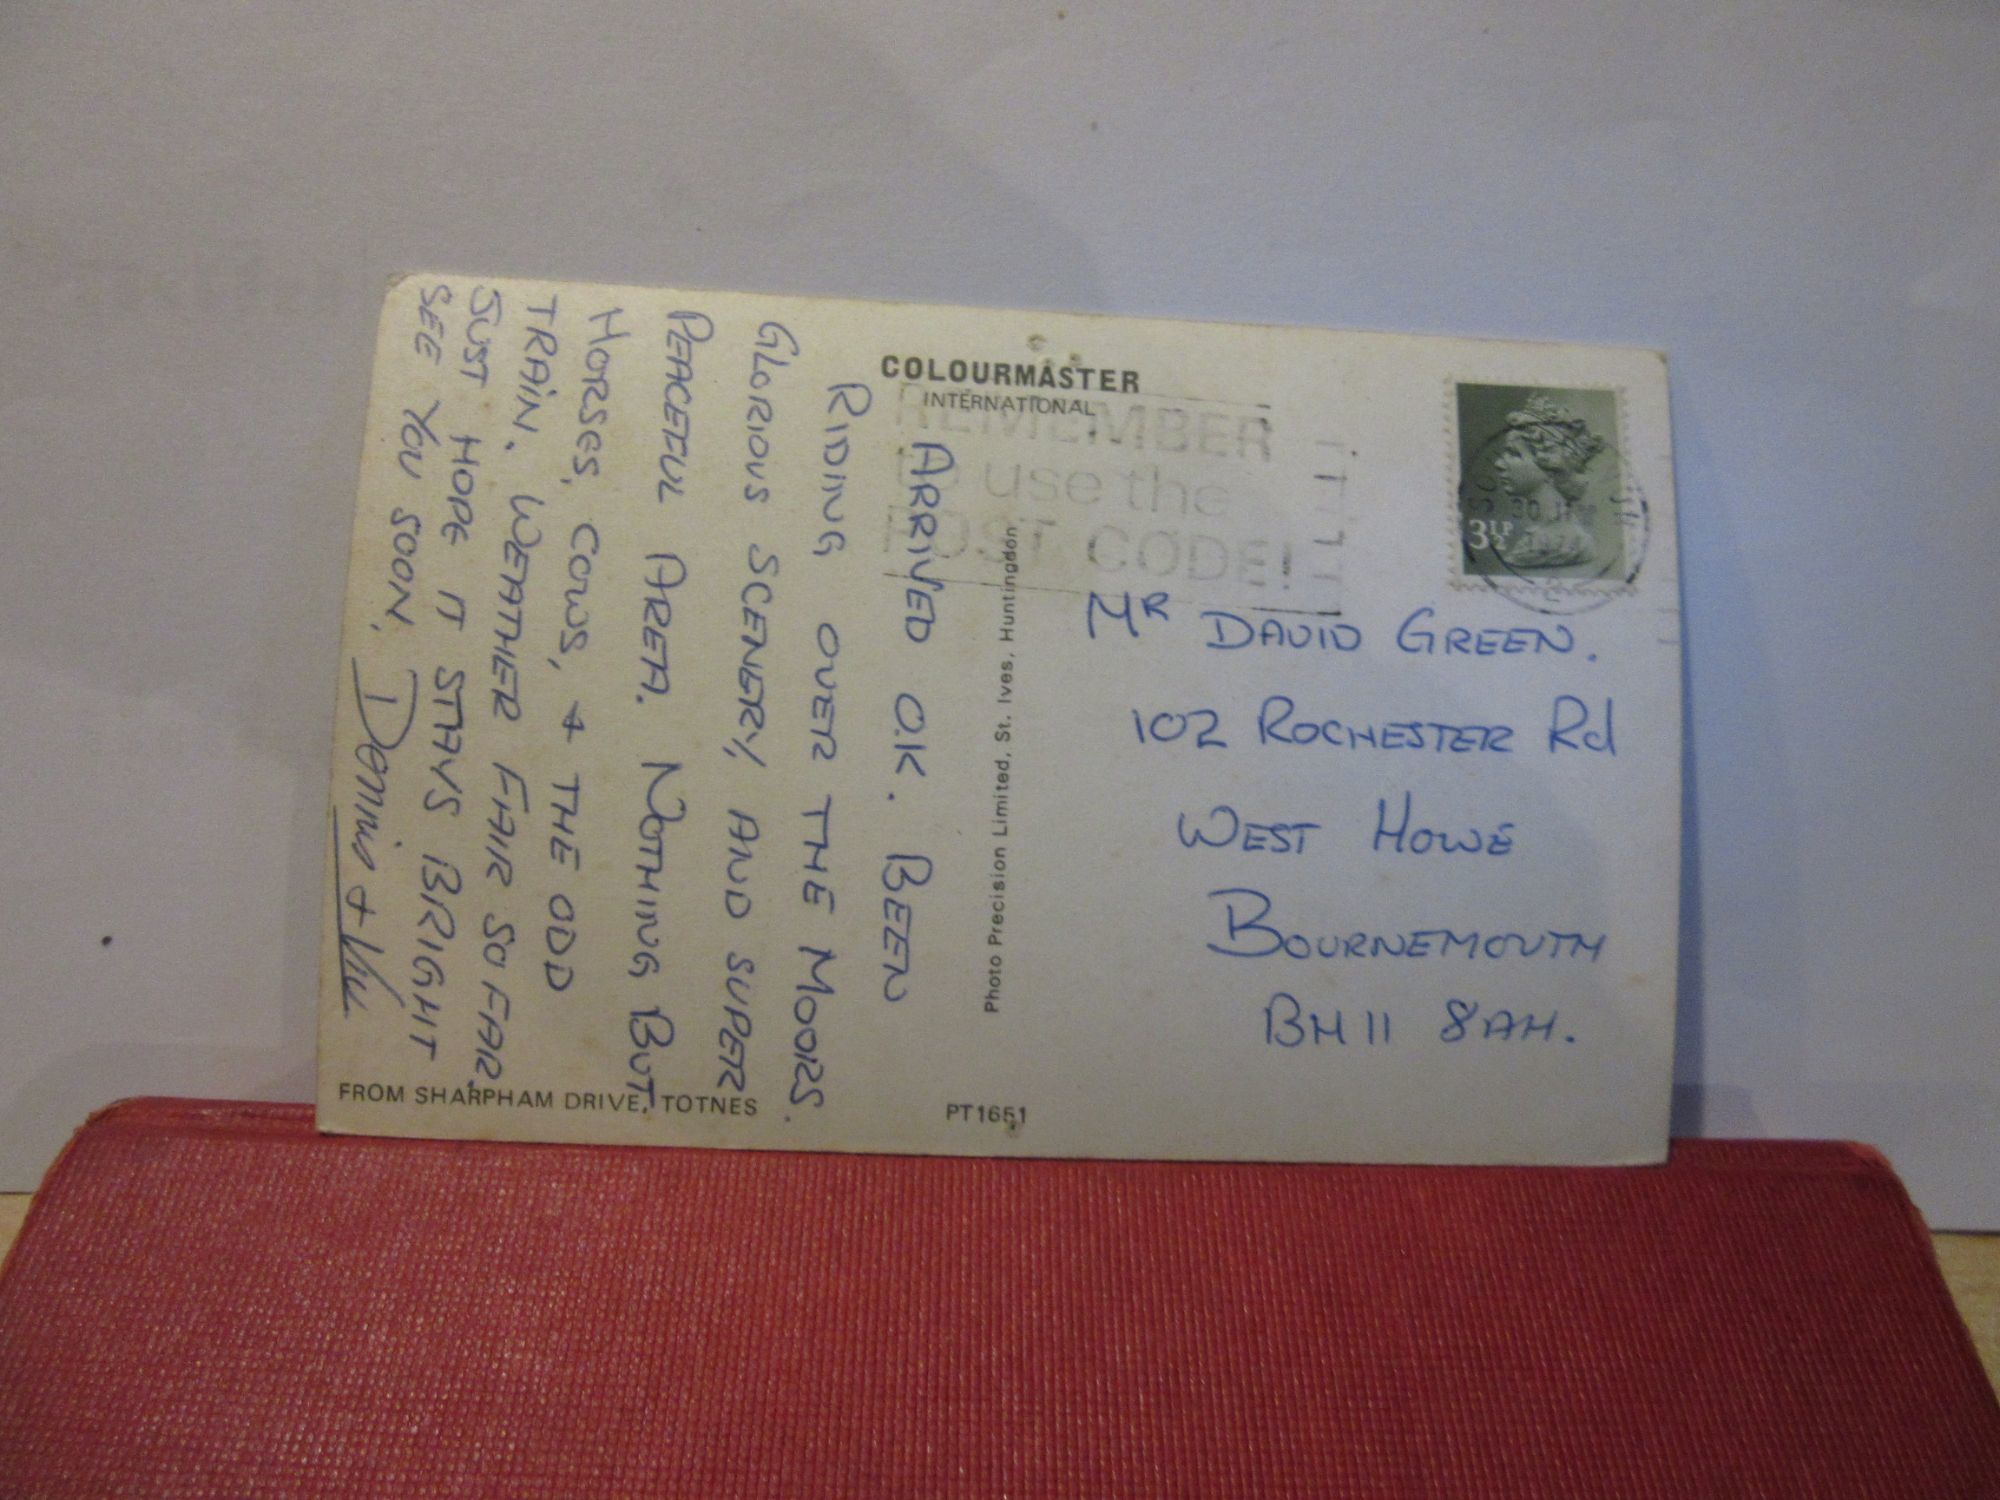 COLOURMASTER
INTERNATIONAL
REMEMBER
to use the
POST CODE!
3½P
ARRIVED O.K. BEEN
RIDING OVER THE MOORS.
GLORIOUS SCENERY, AND SUPER
PEACEFUL AREA. NOTHING BUT
HORSES, COWS, + THE ODD
TRAIN. WEATHER FAIR SO FAR,
JUST HOPE IT STAYS BRIGHT
SEE YOU SOON.
Dennis + Viv
Photo Precision Limited, St. Ives, Huntingdon
MR DAVID GREEN.
102 ROCHESTER Rd
WEST HOWE
BOURNEMOUTH
BH11 8AH.
FROM SHARPHAM DRIVE, TOTNES
PT1651